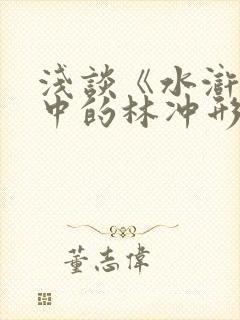 浅談《水滸
中的林沖形
董志偉